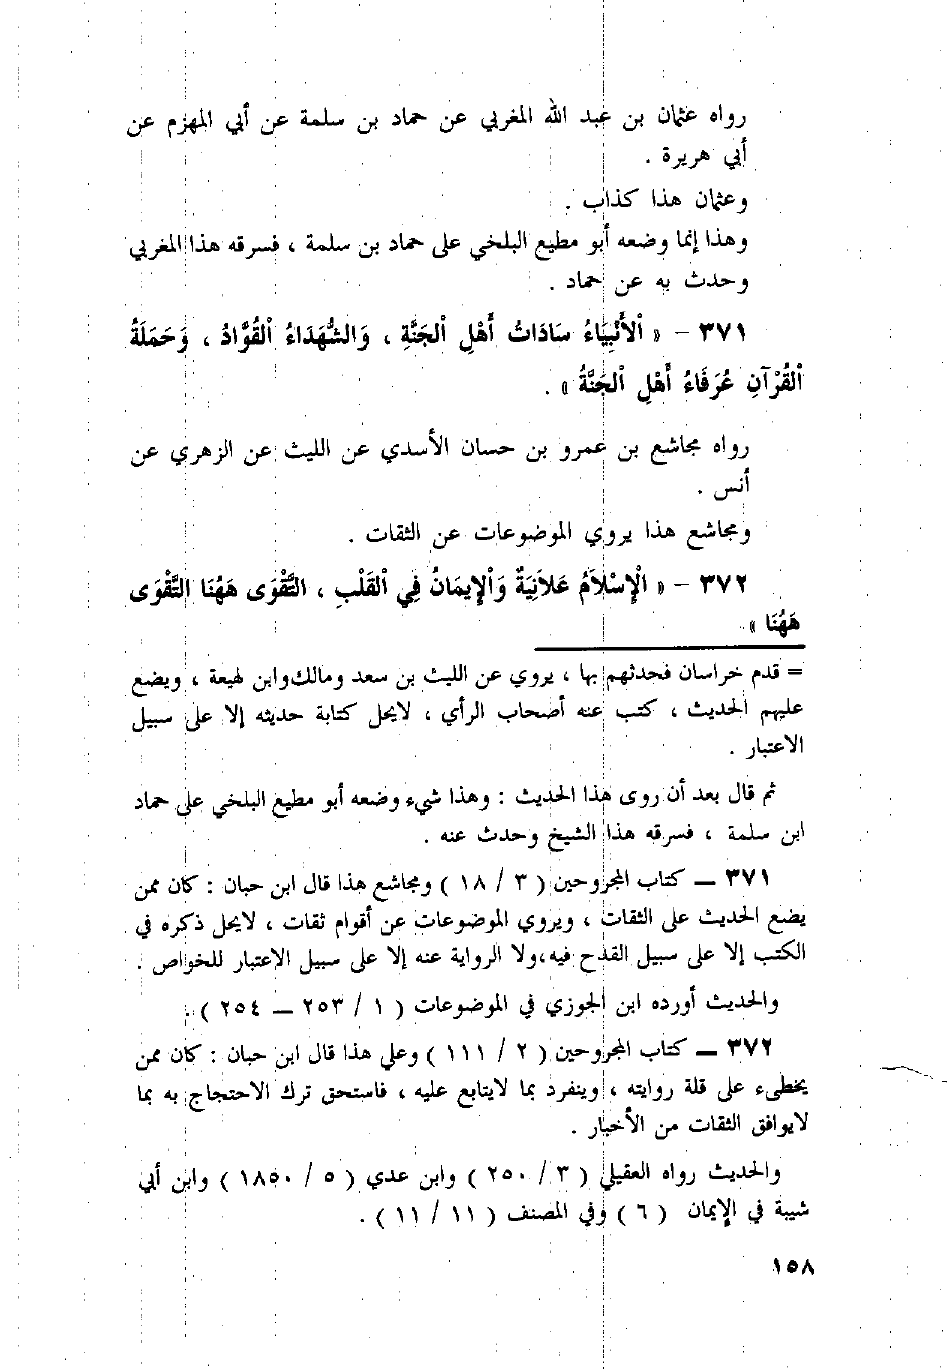 رواه عثمان بن عبد الله المغربي عن حماد بن سلمة عن أبي المهزم عن
أبي هريرة .
وعثمان هذا كذاب .
وهذا إنما وضعه أبو مطيع البلخي على حماد بن سلمة ، فسرقه هذا المغربي
وحدث به عن حماد .
٣٧١ - « ٱلأَنْبِيَاءُ سَادَاتُ أَهْلِ ٱلجَنَّةِ ، وَالشُّهَدَاءُ ٱلقُوَّادُ ، وَحَمَلَةُ
ٱلقُرْآنِ عُرَفَاءُ أَهْلِ ٱلجَنَّةُ » .
رواه مجاشع بن عمرو بن حسان الأسدي عن الليث عن الزهري عن
أنس .
ومجاشع هذا يروي الموضوعات عن الثقات .
٣٧٢ - « الْإِسْلَامُ عَلاَنِيَةٌ وَٱلإِيمَانُ فِي ٱلقَلْبِ ، التَّقْوَى هَهُنَا التَّقْوَى
هَهُنَا »
= قدم خراسان فحدثهم بها ، يروي عن الليث بن سعد ومالك وابن لهيعة ، ويضع
عليهم الحديث ، كتب عنه أصحاب الرأي ، لايحل كتابة حديثه إلا على سبيل
الاعتبار .
ثم قال بعد أن روى هذا الحديث : وهذا شيء وضعه أبو مطيع البلخي على حماد
ابن سلمة ، فسرقه هذا الشيخ وحدث عنه .
٣٧١ ــ كتاب المجروحين ( ٣ / ١٨ ) ومجاشع هذا قال ابن حبان : كان ممن
يضع الحديث على الثقات ، ويروي الموضوعات عن أقوام ثقات ، لايحل ذكره في
الكتب إلا على سبيل القدح فيه،ولا الرواية عنه إلا على سبيل الاعتبار للخواص .
والحديث أورده ابن الجوزي في الموضوعات ( ١ / ٢٥٣ ــ ٢٥٤ ) .
٣٧٢ ــ كتاب المجروحين ( ٢ / ١١١ ) وعلي هذا قال ابن حبان : كان ممن
يخطىء على قلة روايته ، وينفرد بما لايتابع عليه ، فاستحق ترك الاحتجاج به بما
لايوافق الثقات من الأخبار .
والحديث رواه العقيلي ( ٣ / ٢٥٠ ) وابن عدي ( ٥ / ١٨٥٠ ) وابن أبي
شيبة في الإيمان ( ٦ ) وفي المصنف ( ١١ / ١١ ) .
١٥٨